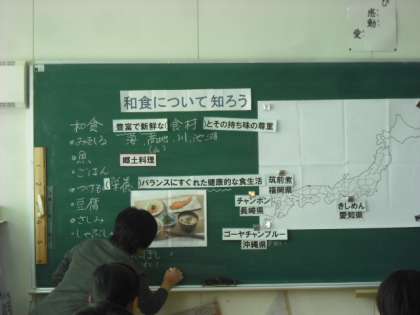 び
感動
愛
和食について知ろう
和食
・みそしる
・魚
・ごはん
・つけもの
・豆腐
・さしみ
・しゃぶしゃぶ
豊富で新鮮な(食材)とその持ち味の尊重
海 川 池 湖
郷土料理
(栄養)バランスにすぐれた健康的な食生活
筑前煮
福岡県
チャンポン
長崎県
ゴーヤチャンプルー
沖縄県
きしめん
愛知県